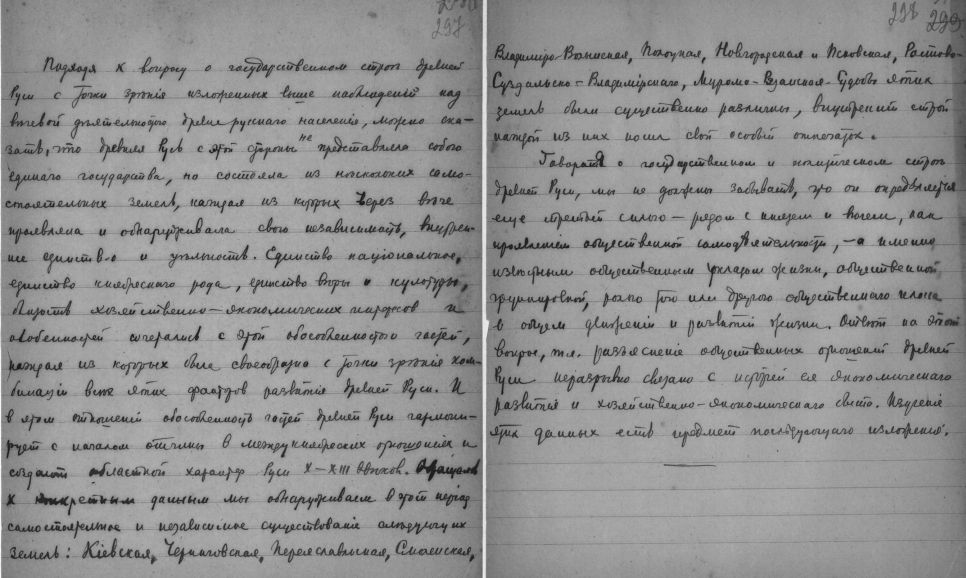 297
Подходя к вопросу о государственном строѣ древней
Руси с точки зрѣнія изложенных выше наблюденій над
вѣчевой дѣятельностью древне русскаго населенія, можно ска-
зать, что древняя Русь с этой стороны не представляла собою
единаго государства, но состояла из нѣскольких само-
стоятельных земель, каждая из которых через вѣче
проявляла и обнаруживала свою независимость, внутрен-
нее единство и цѣльность. Единство національное,
единство княжескаго рода, единство вѣры и культуры,
общность хозяйственно-экономических интересов и
особенностей сочетались с этой обособленностью частей,
каждая из которых была своеобразна с точки зрѣнія ком-
бинаціи всѣх этих факторов развитія древней Руси. И
в этом отношеніи обособленность частей древней Руси гармони-
рует с началом отчины в междукняжеских отношеніях и
создает областной характер Руси X–XIII вѣков. Обращаясь
к конкретным данным мы обнаруживаем в этот період
самостоятельное и независимое существованіе слѣдующих
земель: Кіевская, Черниговская, Переяславльская, Смоленская,
298 299
Владиміро-Волынская, Полоцкая, Новгородская и Псковская, Ростово-
Суздальско-Владимірская, Муромо-Рязанская. Судьбы этих
земель были существенно различны, внутренній строй
каждой из них носил свой особый отпечаток.
Говоря о государственном и политическом строѣ
древней Руси, мы не должны забывать, что он опредѣляется
еще третьей силою — рядом с князем и вѣчем, как
проявленіем общественной самодѣятельности, — а именно
извѣстным общественным укладом жизни, общественной
группировкой, ролью того или другого общественнаго класса
в общем движеніи и развитіи жизни. Отвѣт на этот
вопрос, т.е. разъясненіе общественных отношеній древней
Руси неразрывно связано с исторіей ея экономическаго
развитія и хозяйственно-экономическаго быта. Изученіе
этих данных есть предмет послѣдующаго изложенія.